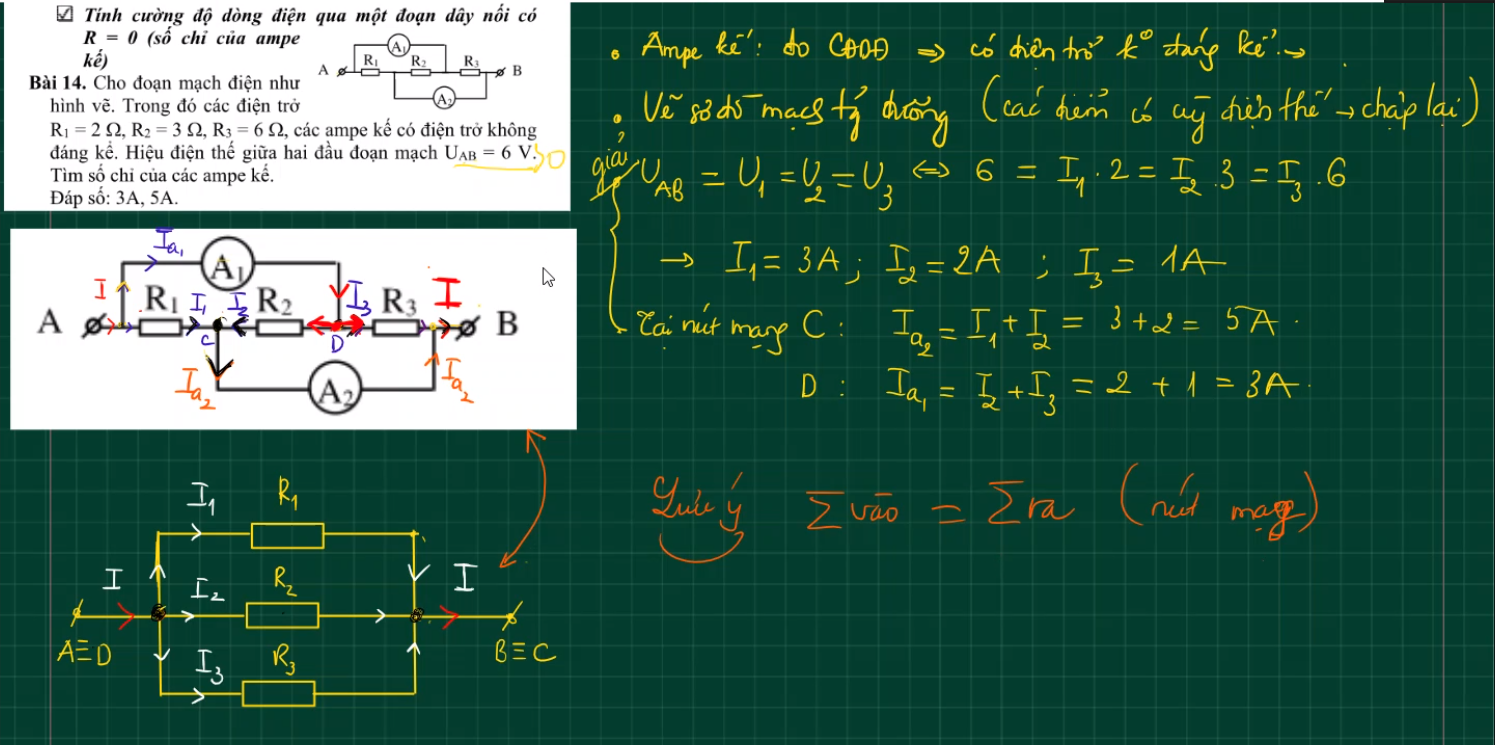 ☑ Tính cường độ dòng điện qua một đoạn dây nối có
R = 0 (số chỉ của ampe
kế)
Bài 14. Cho đoạn mạch điện như
hình vẽ. Trong đó các điện trở
R₁ = 2 Ω, R₂ = 3 Ω, R₃ = 6 Ω, các ampe kế có điện trở không
đáng kể. Hiệu điện thế giữa hai đầu đoạn mạch U_AB = 6 V.
Tìm số chỉ của các ampe kế.
Đáp số: 3A, 5A.
A₁
A R₁ R₂ R₃ B
A₂
I_a₁ A₁
I R₁ I₁ I₂ R₂ I₃ R₃ I
A C D B
I_a₂ A₂ I_a₂
I₁ R₁
I I₂ R₂ I
A≡D B≡C
I₃ R₃
• Ampe kế: đo CĐDĐ ⇒ có điện trở k° đáng kể →
• Vẽ sơ đồ mạch tg đương (các điểm có cùg điện thế → chập lại)
giải U_AB = U₁ = U₂ = U₃ ⇔ 6 = I₁ . 2 = I₂ . 3 = I₃ . 6
→ I₁ = 3A ; I₂ = 2A ; I₃ = 1A
Tại nút mạng C : I_a₂ = I₁ + I₂ = 3 + 2 = 5A .
D : I_a₁ = I₂ + I₃ = 2 + 1 = 3A .
Lưu ý Σ vào = Σ ra (nút mạng)